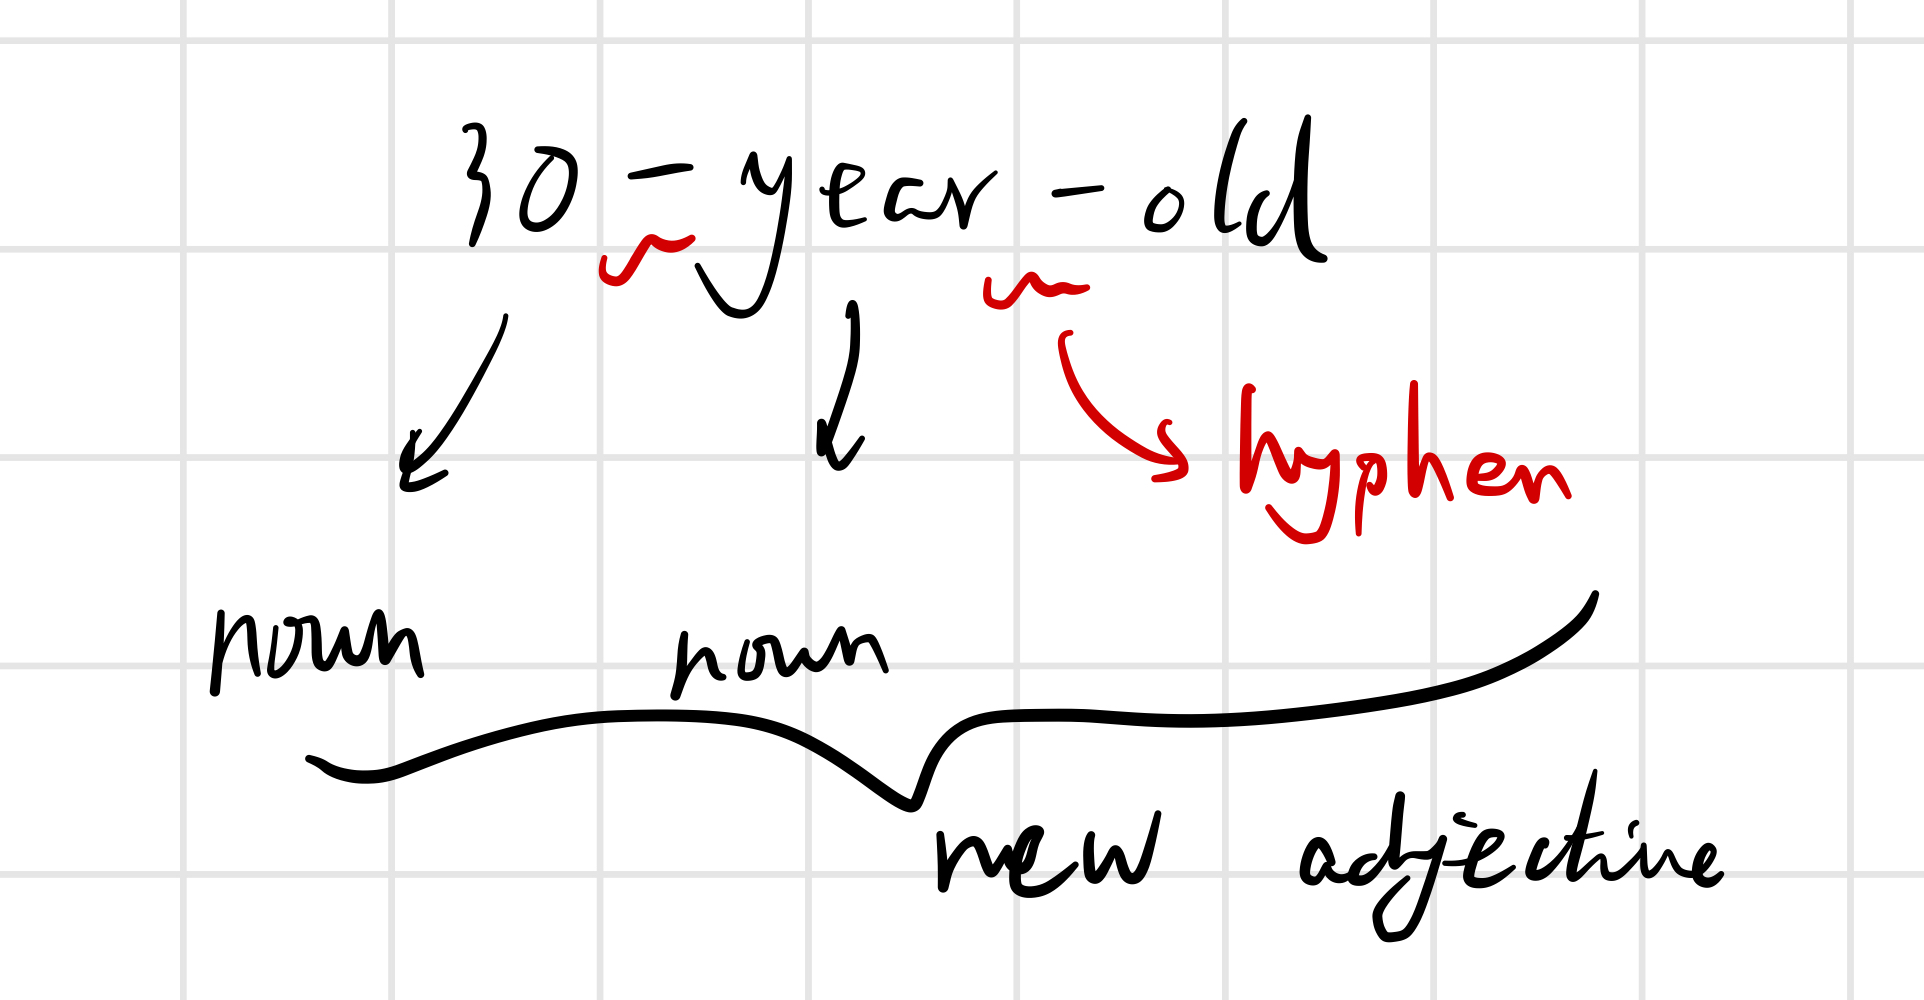 30-year-old
hyphen
noun noun
new adjective